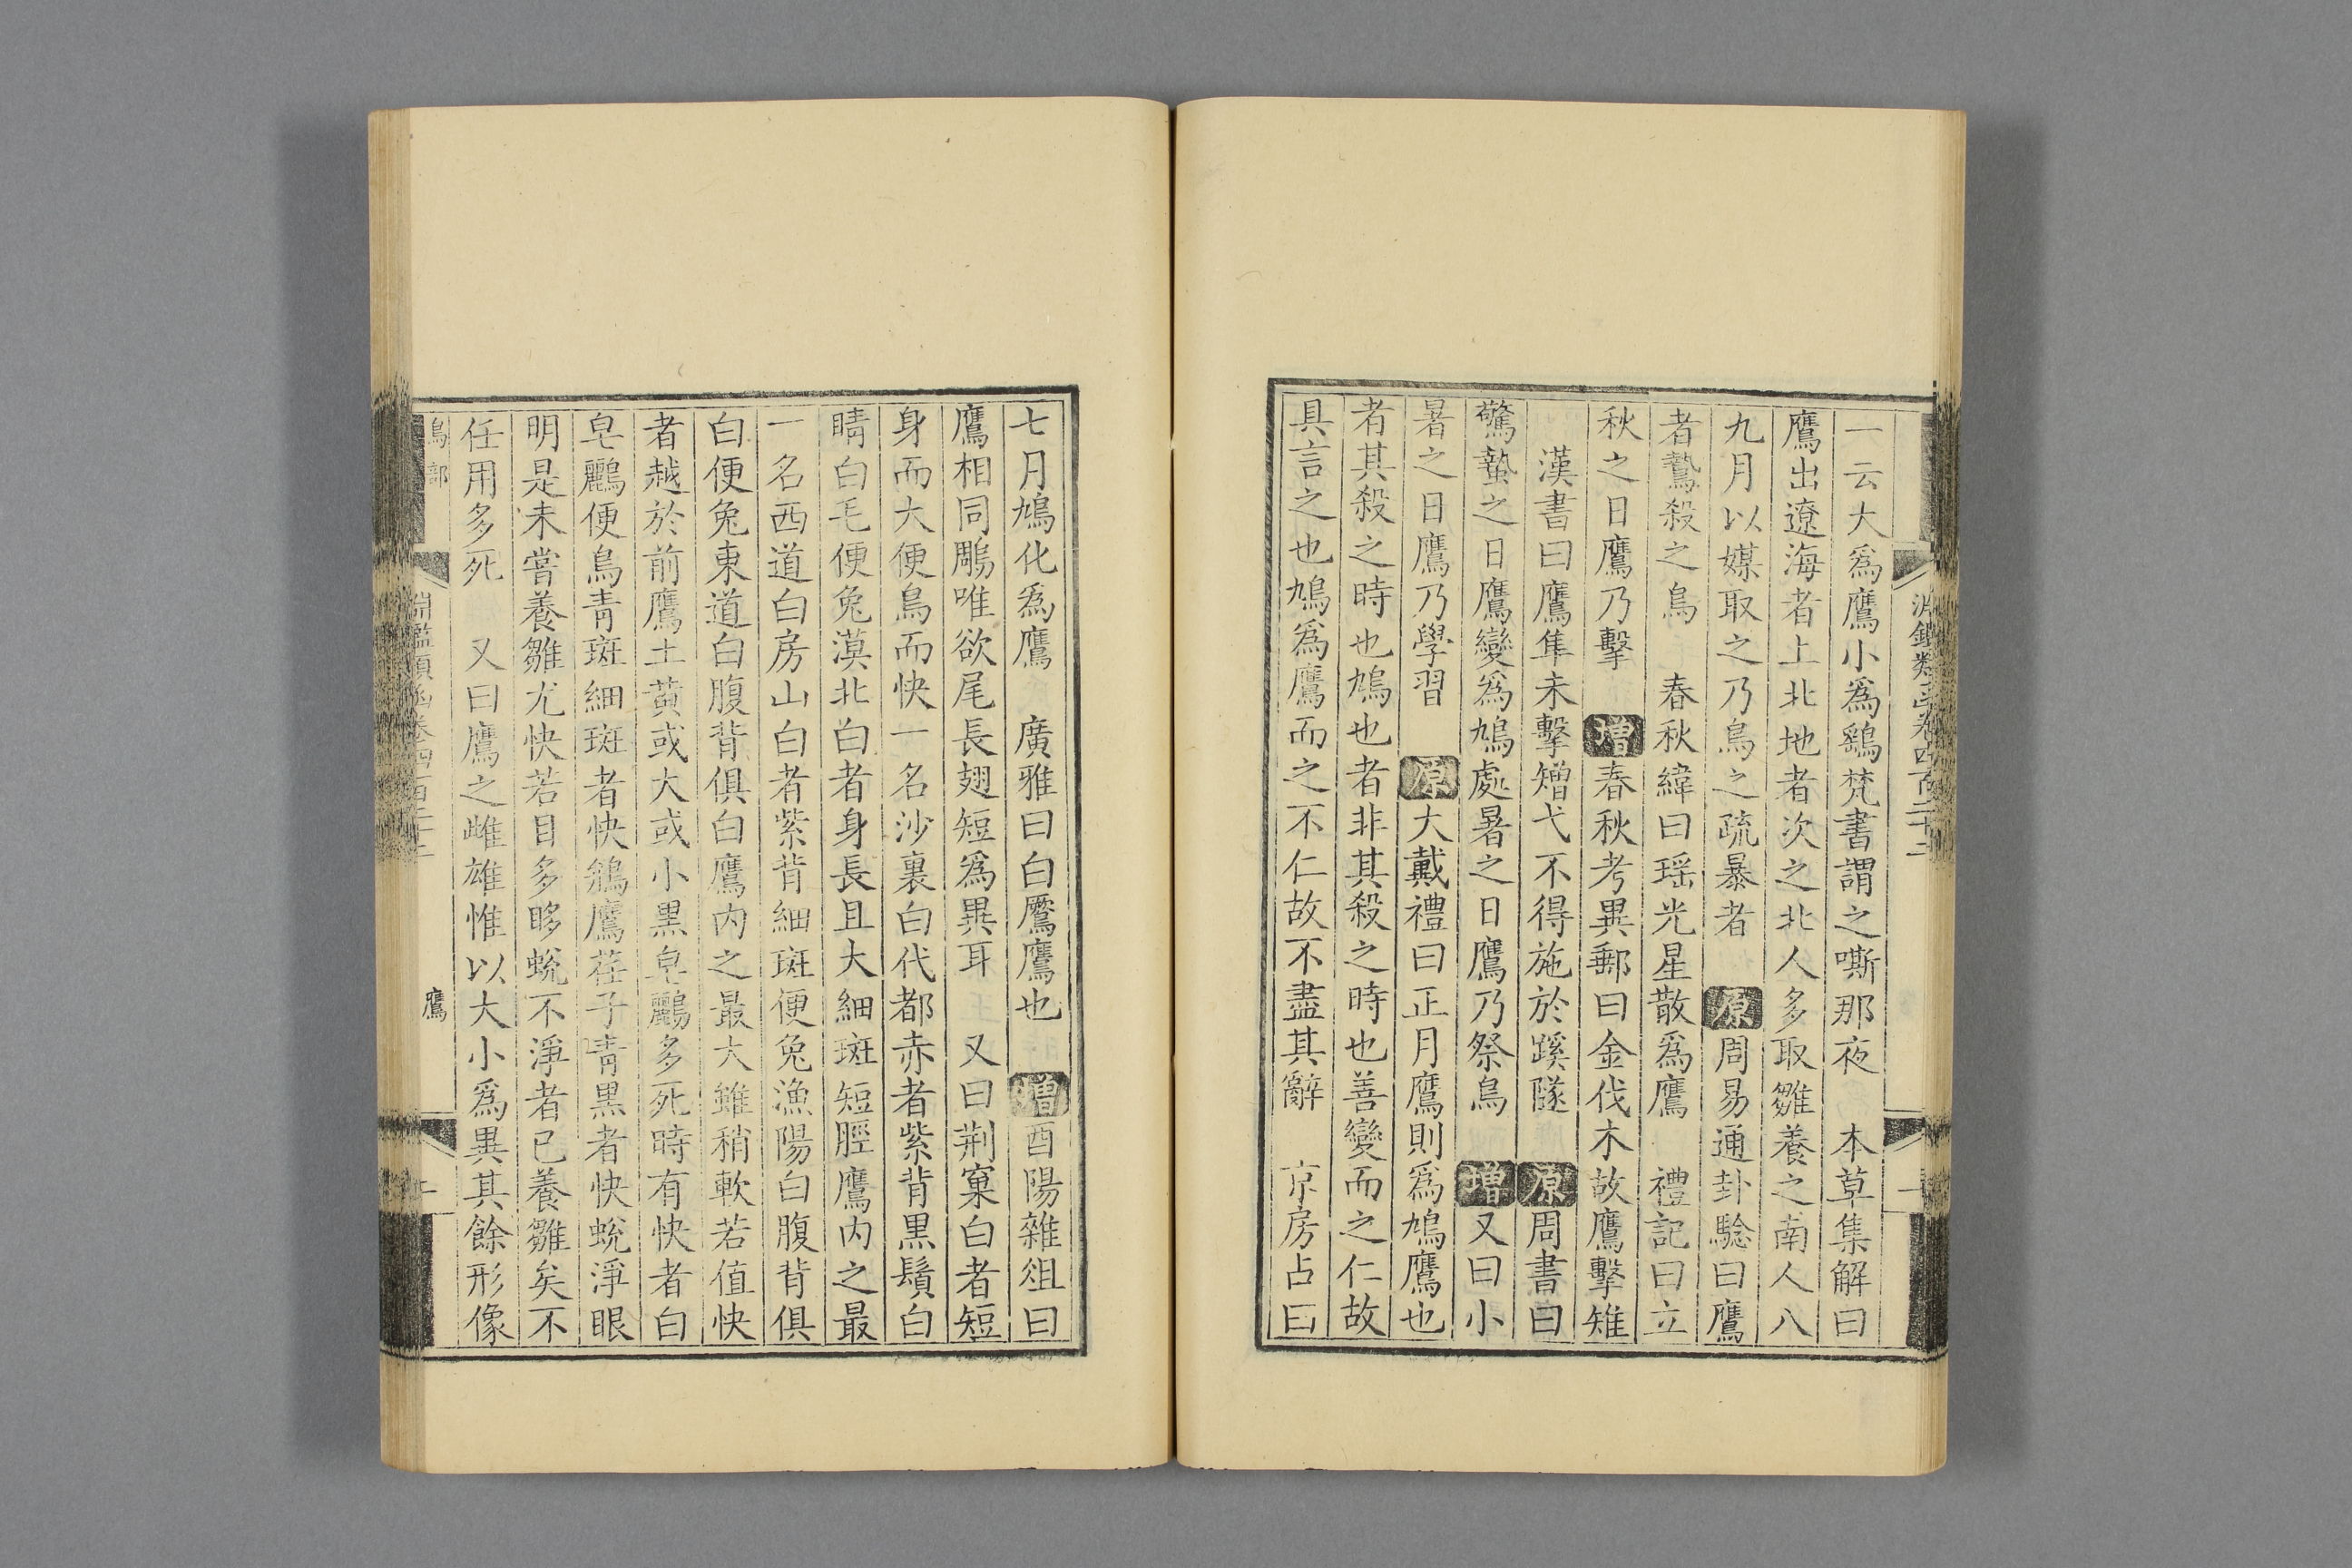 淵鑑類函卷四百二十二
一云大爲鷹小爲鷂梵書謂之嘶那夜　本草集解曰
鷹出遼海者上北地者次之北人多取雛養之南人八
九月以媒取之乃鳥之疏暴者　原周易通卦驗曰鷹
者鷙殺之鳥　春秋緯曰瑶光星散爲鷹　禮記曰立
秋之日鷹乃擊　增春秋考異郵曰金伐木故鷹擊雉
漢書曰鷹隼未擊矰弋不得施於蹊隧　原周書曰
驚蟄之日鷹變爲鳩處暑之日鷹乃祭鳥　增又曰小
暑之日鷹乃學習　原大戴禮曰正月鷹則爲鳩鷹也
者其殺之時也鳩也者非其殺之時也善變而之仁故
具言之也鳩爲鷹而之不仁故不盡其辭　京房占曰
七月鳩化爲鷹　廣雅曰白鷢鷹也　增酉陽雜俎曰
鷹相同鵰唯欲尾長翅短爲異耳　又曰荆窠白者短
身而大便鳥而快一名沙裏白代都赤者紫背黑鬚白
睛白毛便兔漠北白者身長且大細斑短脛鷹内之最
一名西道白房山白者紫背細斑便兔漁陽白腹背俱
白便兔東道白腹背俱白鷹内之最大雖稍軟若值快
者越於前鷹土黄或大或小黑皂鸝多死時有快者白
皂鸝便鳥青斑細斑者快鵵鷹荏子青黑者快蛻淨眼
明是未嘗養雛尤快若目多眵蛻不淨者已養雛矣不
任用多死　又曰鷹之雌雄惟以大小爲異其餘形像
鳥部
淵鑑類函卷四百二十二
鷹